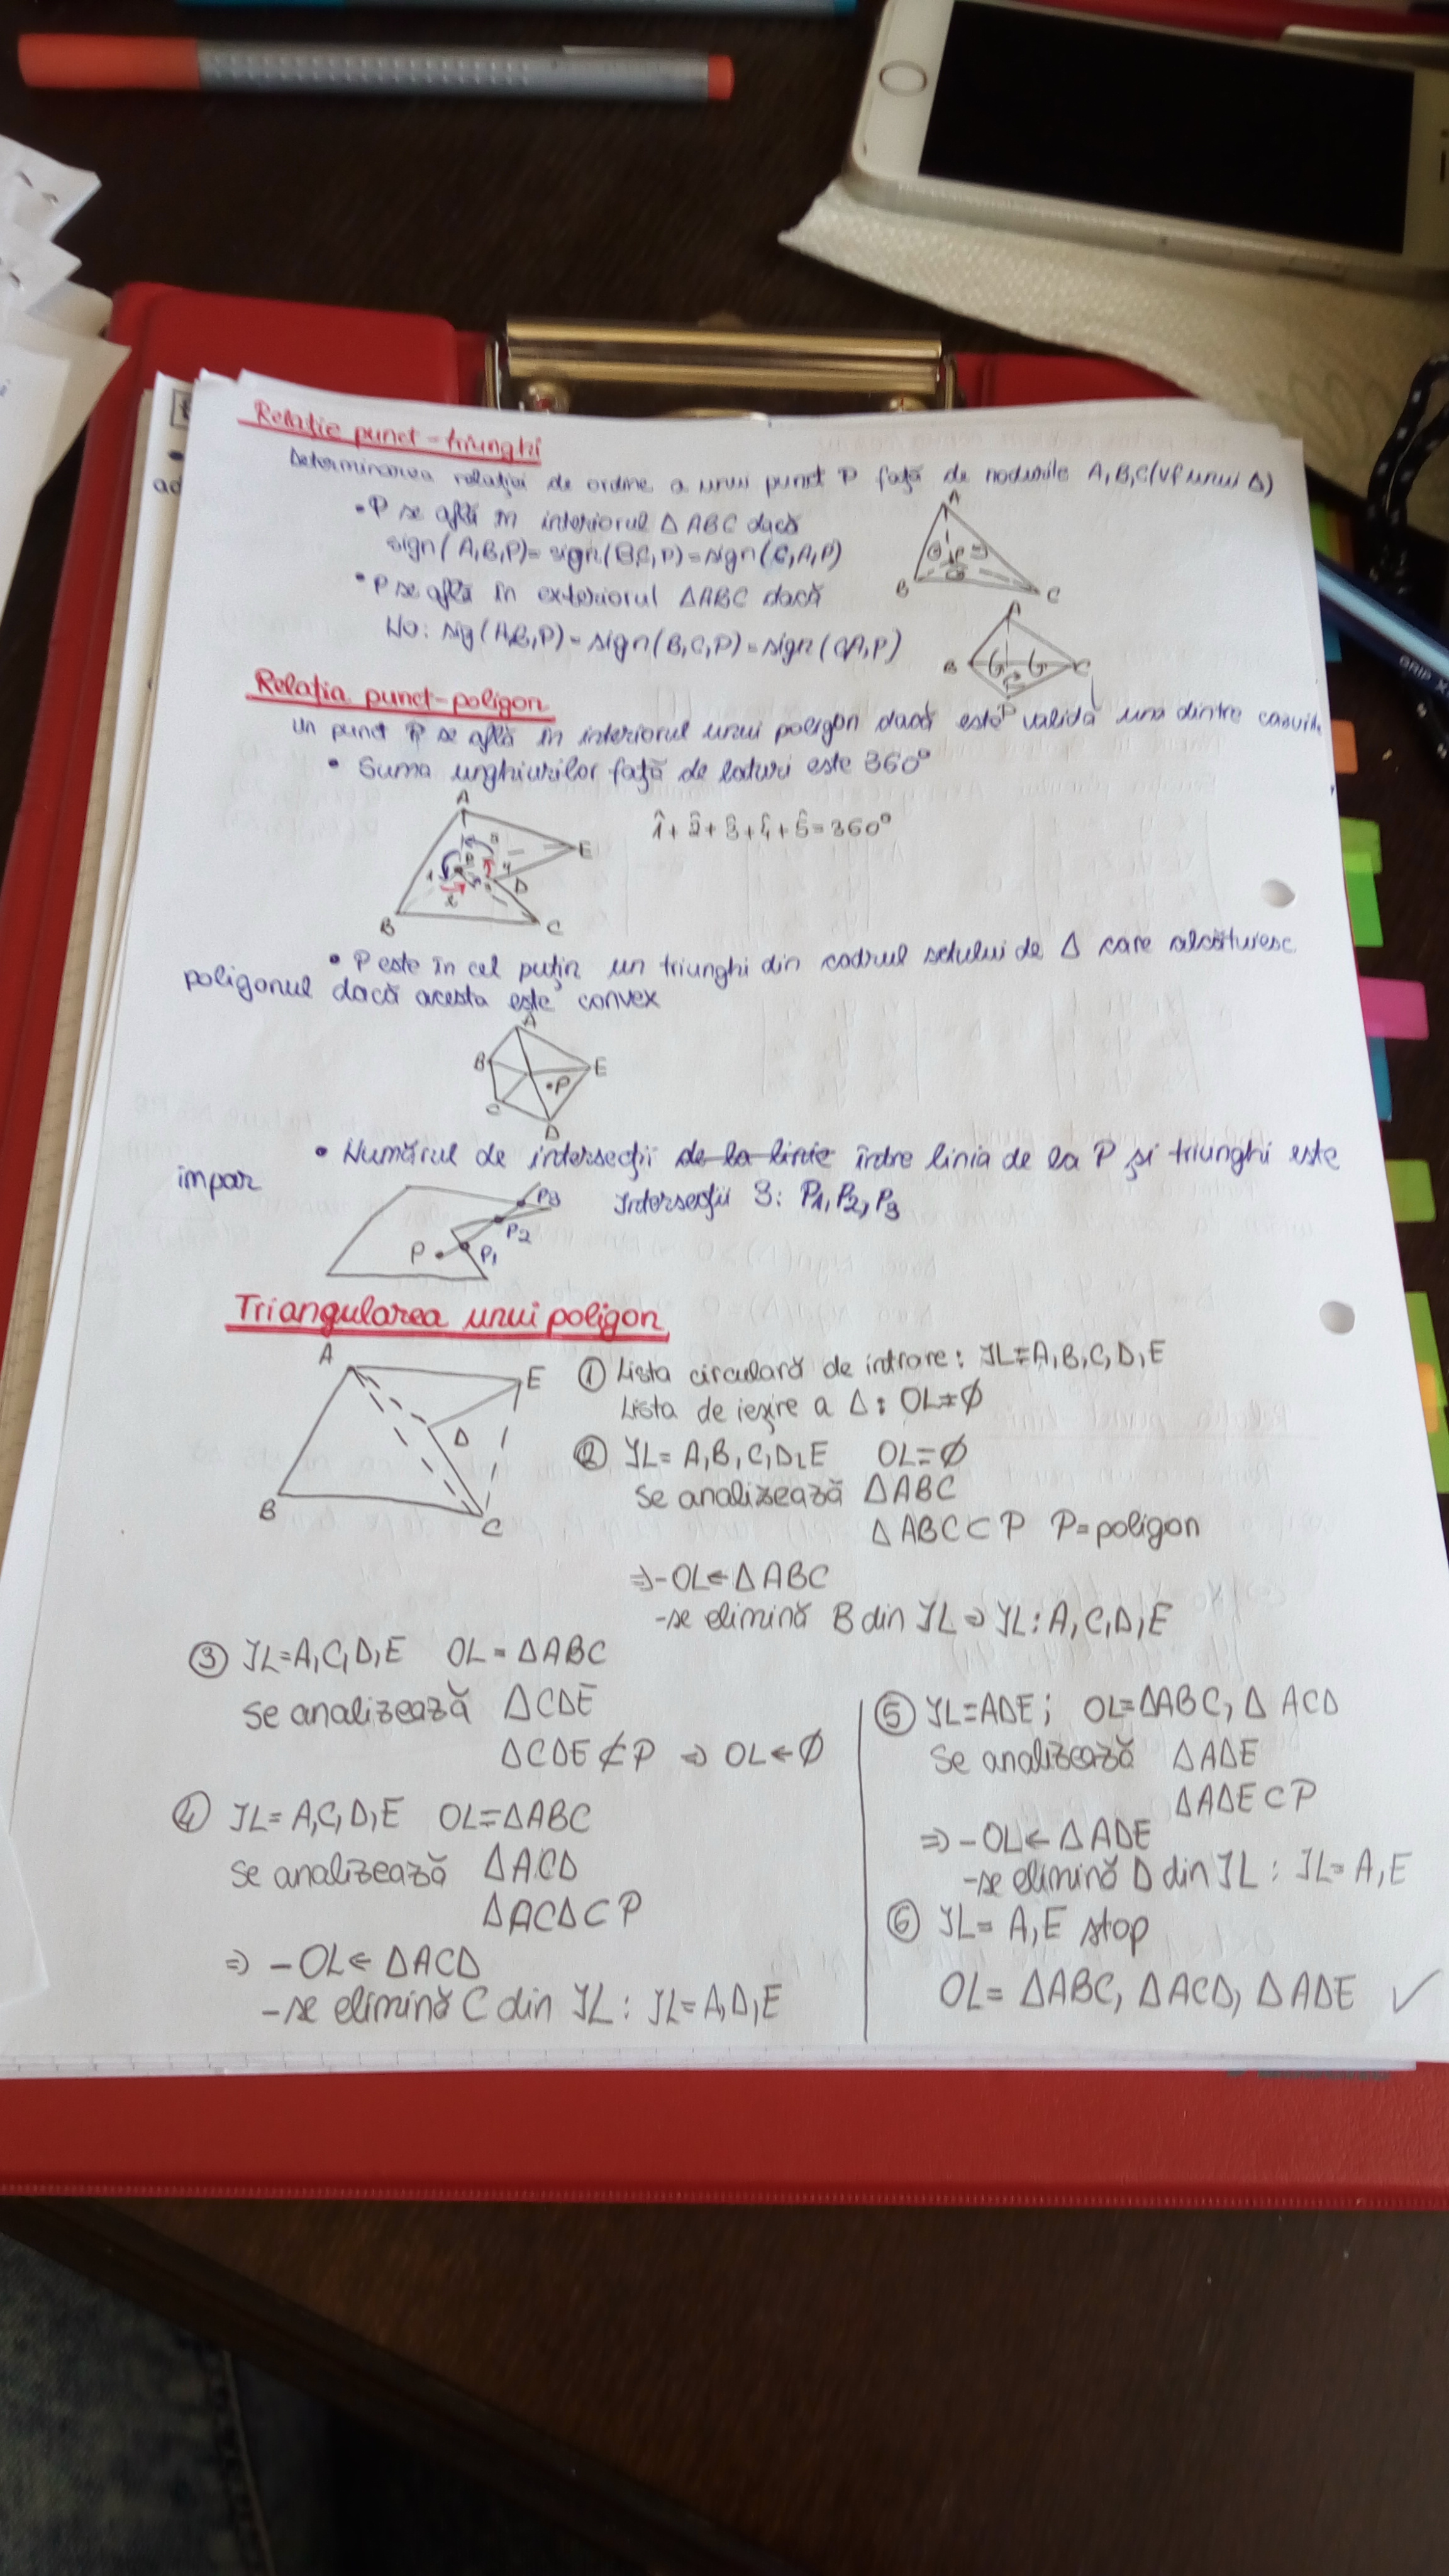 Relație punct-triunghi
Determinarea relației de ordine a unui punct P față de nodurile A,B,C(vf unui Δ)
• P se află în interiorul Δ ABC dacă
sign(A,B,P)=sign(B,C,P)=sign(C,A,P)
• P se află în exteriorul ΔABC dacă
No: sig(A,B,P)=sign(B,C,P)=sign(C,A,P)
A
P
B
C
A
B
C
P
Relația punct-poligon
Un punct P se află în interiorul unui poligon dacă este validă una dintre cazurile
• Suma unghiurilor față de laturi este 360°
1̂+2̂+3̂+4̂+5̂=360°
A
E
P
D
B
C
• P este în cel puțin un triunghi din cadrul setului de Δ care alcătuiesc
poligonul dacă acesta este convex
A
B
E
•P
C
D
• Numărul de intersecții de la linie între linia de la P și triunghi este
impar
Intersecții 3: P1, P2, P3
P3
P2
P
P1
Triangularea unui poligon
A
E
D
B
C
① Lista circulară de intrare: IL=A,B,C,D,E
Lista de ieșire a Δ: OL=∅
② IL=A,B,C,D,E OL=∅
Se analizează ΔABC
ΔABC⊂P P=poligon
⇒-OL←ΔABC
-se elimină B din IL⇒IL:A,C,D,E
③ IL=A,C,D,E OL=ΔABC
Se analizează ΔCDE
ΔCDE⊄P ⇒ OL←∅
④ IL=A,C,D,E OL=ΔABC
Se analizează ΔACD
ΔACD⊂P
⇒ -OL←ΔACD
-se elimină C din IL: IL=A,D,E
⑤ IL=ADE; OL=ΔABC, ΔACD
Se analizează ΔADE
ΔADE⊂P
⇒-OL←ΔADE
-se elimină D din IL: IL=A,E
⑥ IL=A,E stop
OL=ΔABC, ΔACD, ΔADE ✓
GRIP